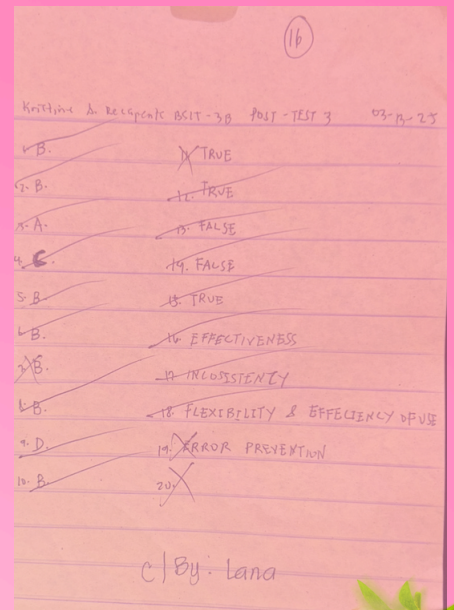 16
BSIT-3B POST-TEST 3 03-13-25
1. B.
2. B.
3. A.
4. C.
5. B
6. B
7. B.
8. B.
9. D.
10. B.
11. TRUE
12. TRUE
13. FALSE
14. FALSE
15. TRUE
16. EFFECTIVENESS
17. INCOSISTENCY
18. FLEXIBILITY & EFFECIENCY OF USE
19. ERROR PREVENTION
20.
C/By: Lana